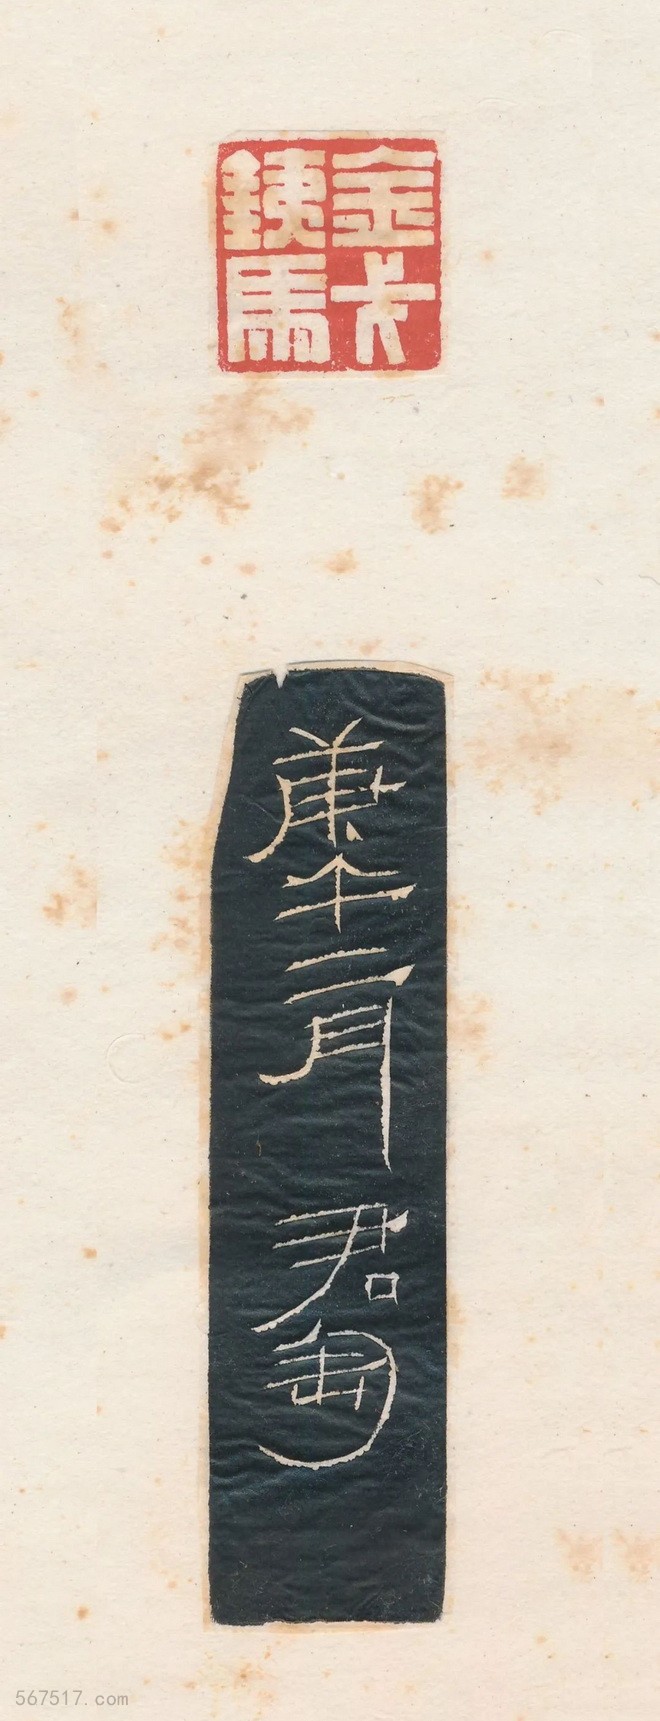 金戈
銕馬
庚午二月 君匋
567517.com